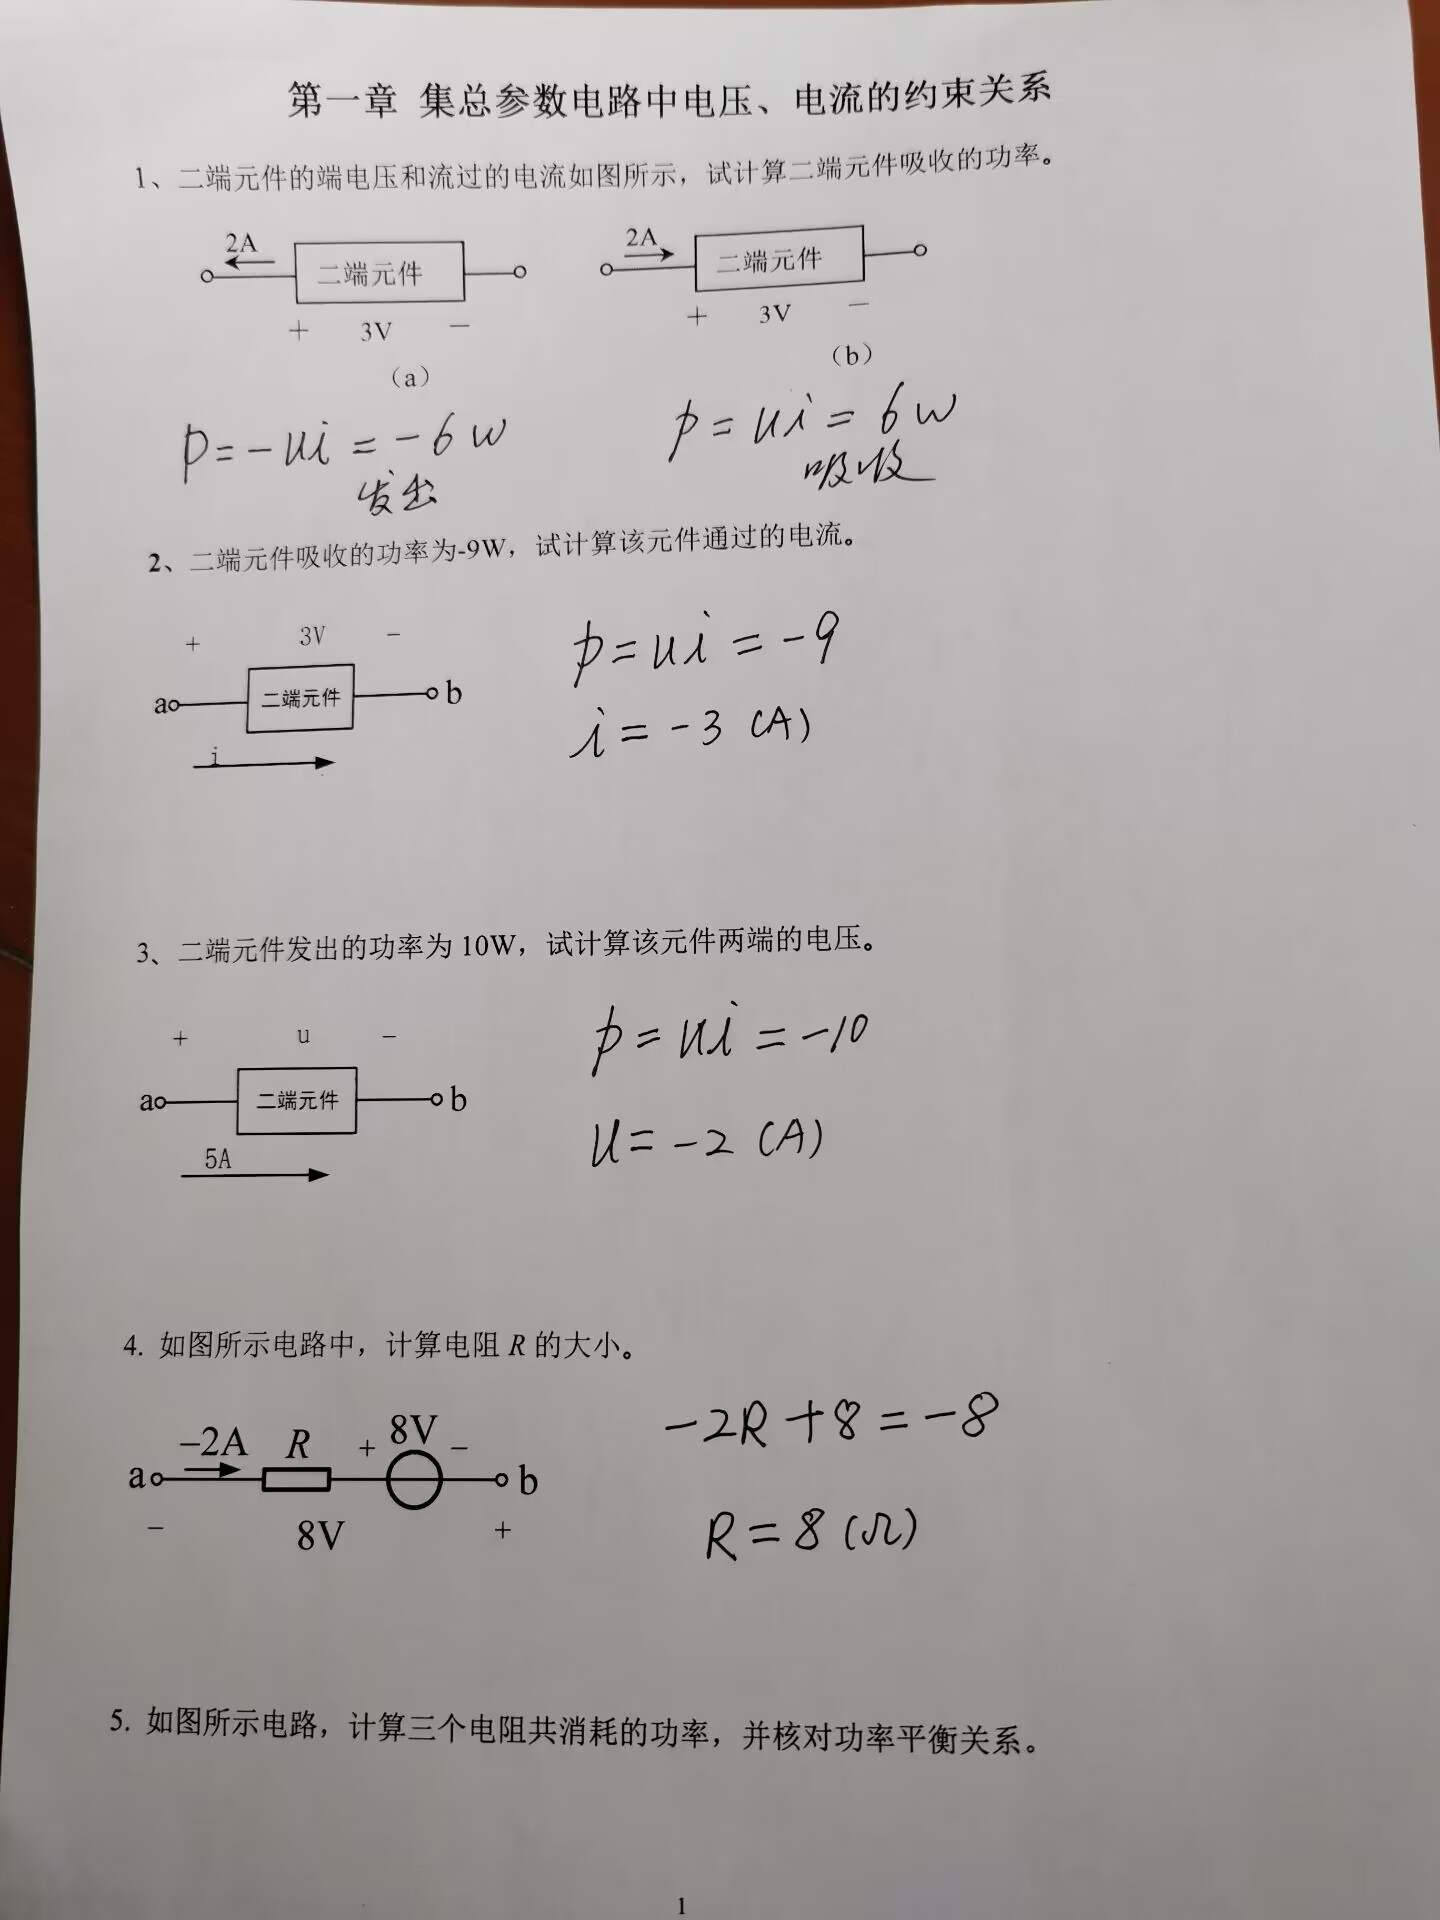 第一章 集总参数电路中电压、电流的约束关系
1、二端元件的端电压和流过的电流如图所示，试计算二端元件吸收的功率。
2A
二端元件
+ 3V −
(a)
2A
二端元件
+ 3V −
(b)
p=-ui=-6w
发出
p=ui=6w
吸收
2、二端元件吸收的功率为-9W，试计算该元件通过的电流。
+ 3V −
a 二端元件 b
i
p=ui=-9
i=-3 (A)
3、二端元件发出的功率为 10W，试计算该元件两端的电压。
+ u −
a 二端元件 b
5A
p=ui=-10
u=-2 (A)
4. 如图所示电路中，计算电阻 R 的大小。
−2A R + 8V −
a b
− 8V +
-2R+8=-8
R=8(Ω)
5. 如图所示电路，计算三个电阻共消耗的功率，并核对功率平衡关系。
1